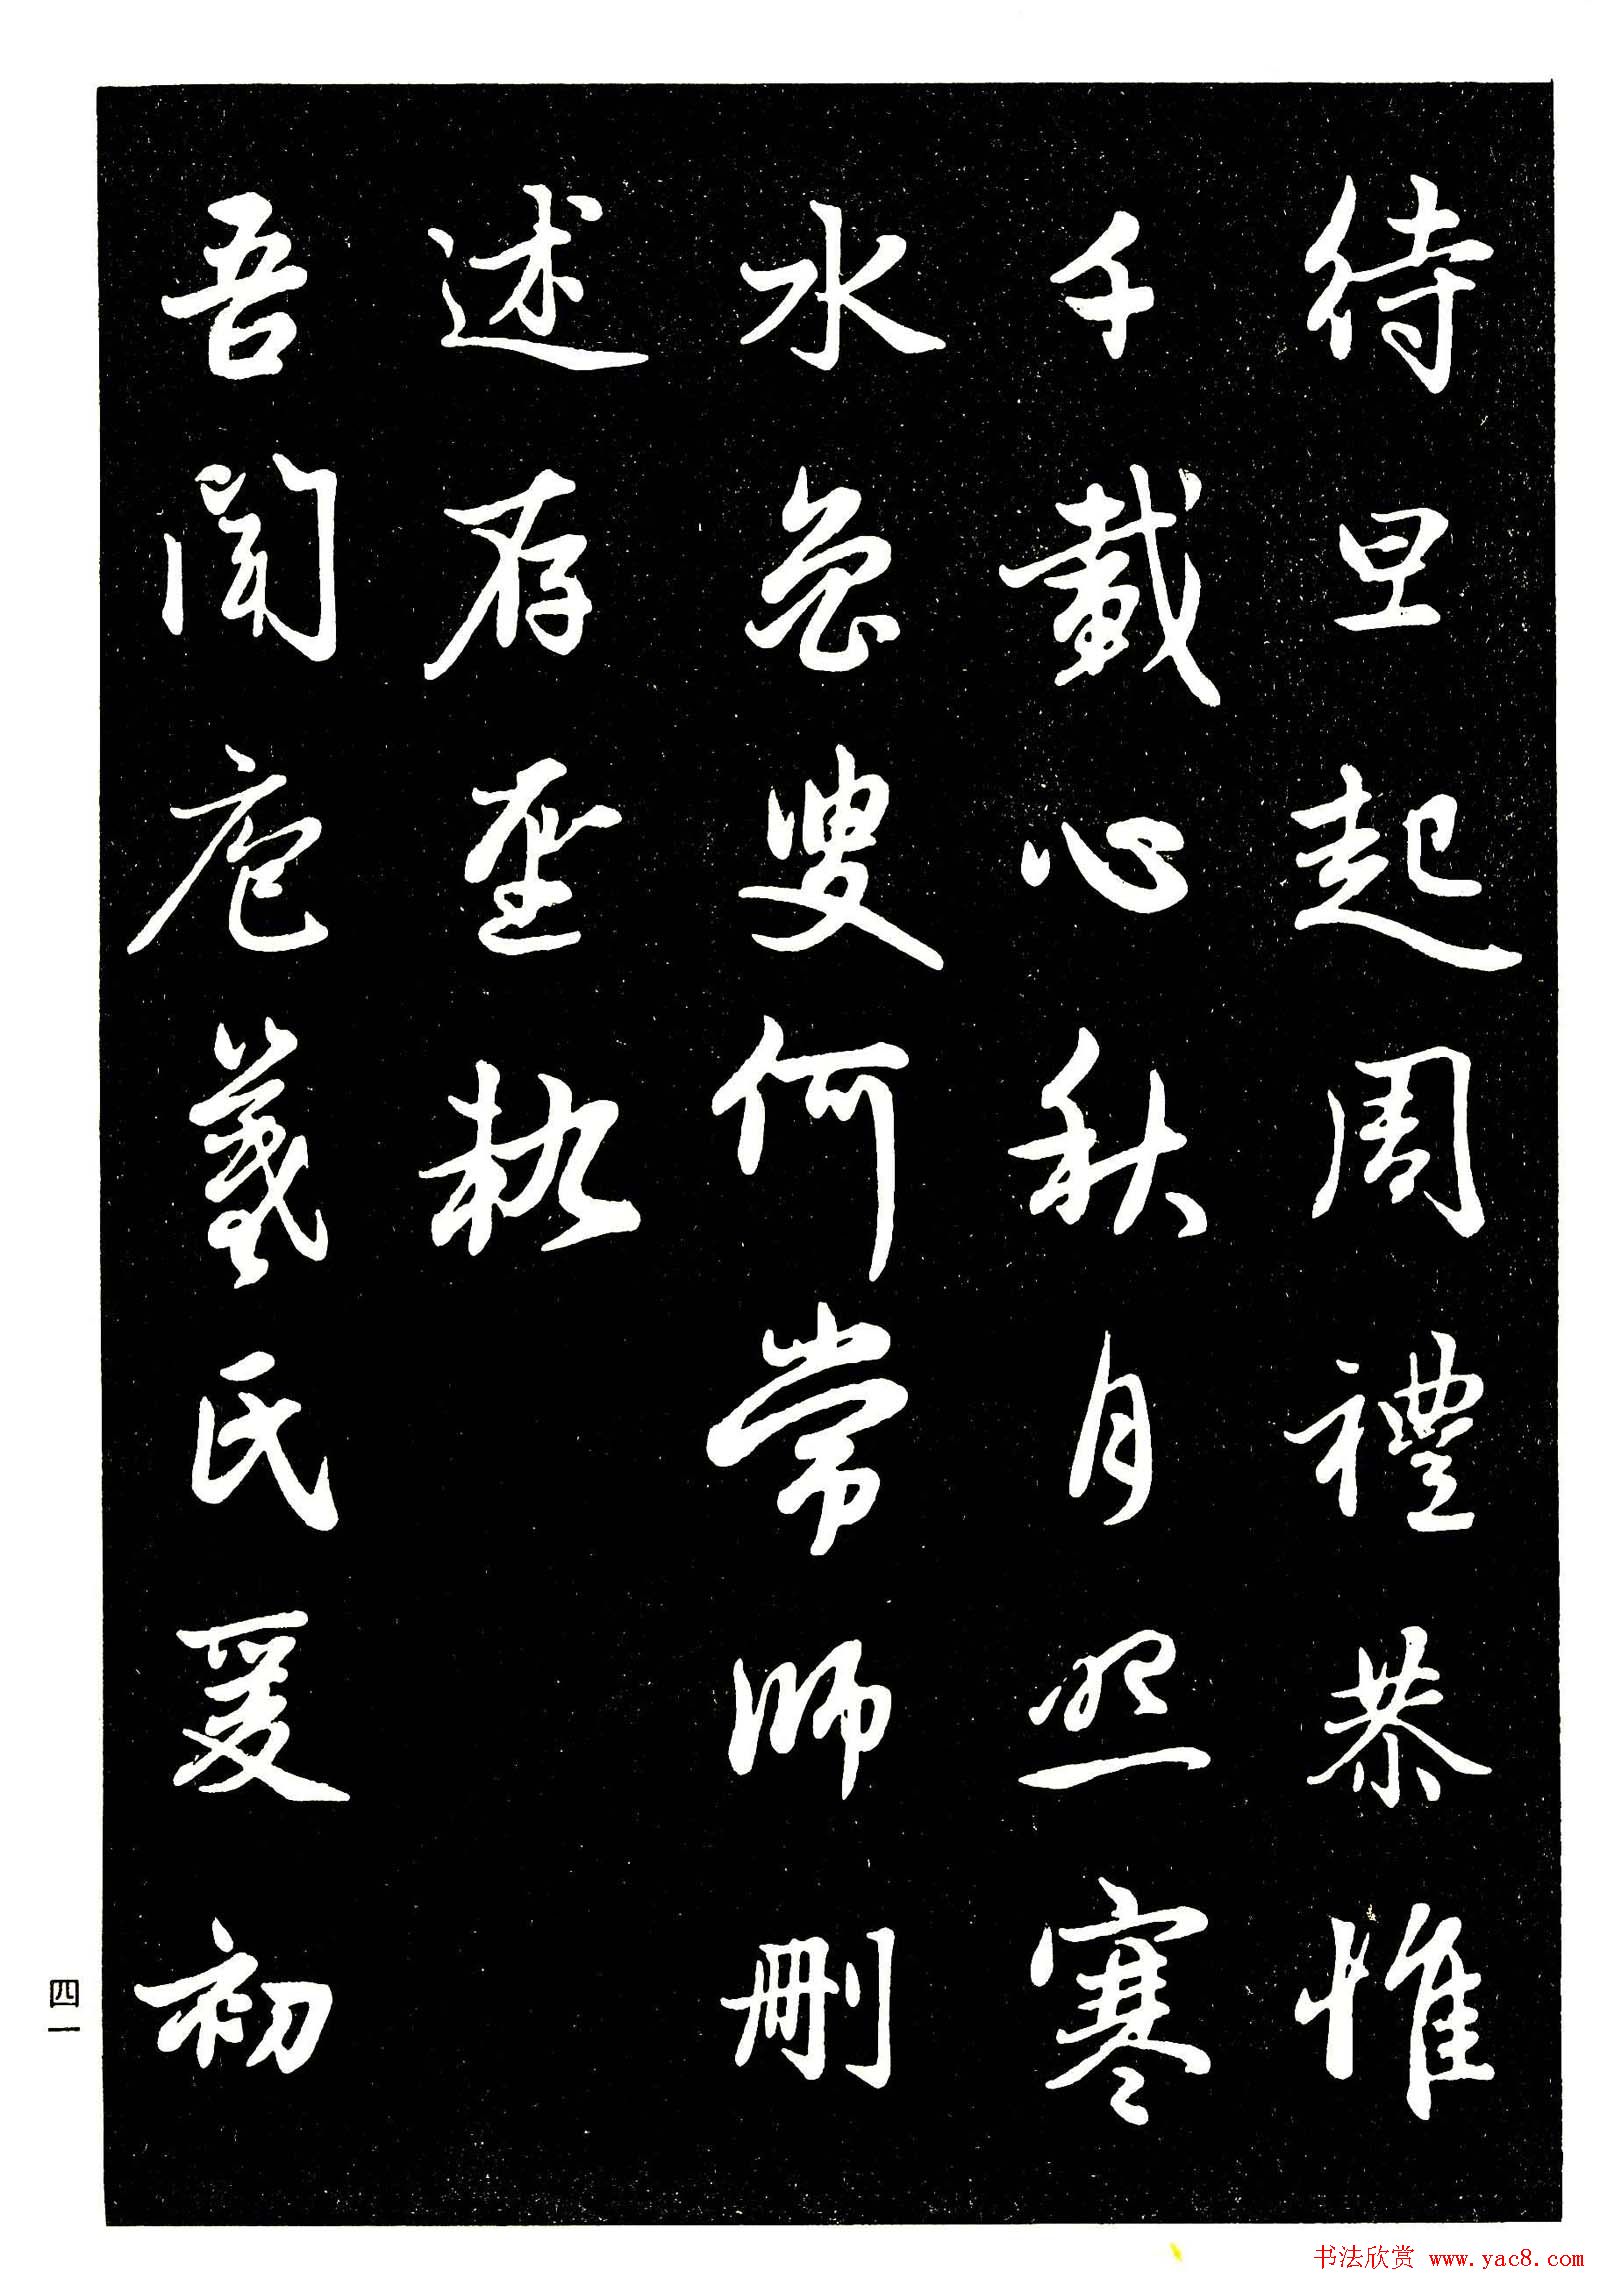 待旦起周禮恭惟
千載心秋月照寒
水魯叟何常師刪
述存聖軌
吾聞庖羲氏爰初
四一
书法欣赏 www.yac8.com